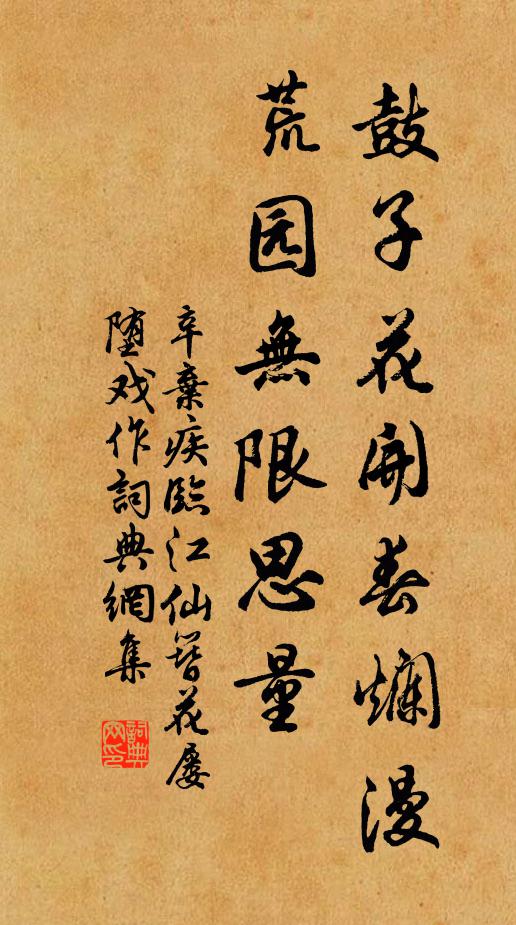 鼓子花開春爛漫
荒园無限思量
辛棄疾臨江仙簪花屡
堕戏作詞典網集
詞典网印